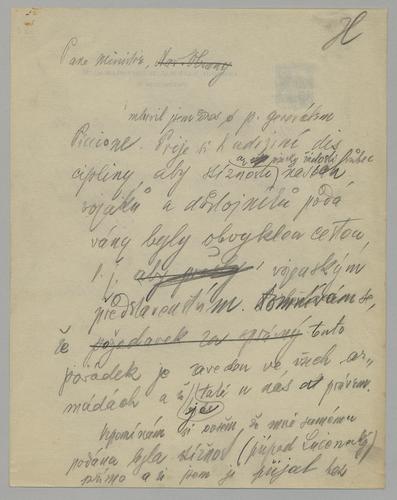 H
Pane ministře, nár. Obrany
mluvil jsem dnes s p. generálem
Piccione. Přeje si k udržení dis
cipliny, aby stížnosti našich
vojáků a důstojníků podá
vány byly obvyklou cestou
t. j. aby vojenským
představenstvím. Domnívám se,
že požadavek za správný tento
pořádek je zaveden ve všech ar-
mádách a i také u nás právem.
Vzpomínám si ovšem, že mně samému
podána byla stížnost (případ Lucenský)
přímo a že jsem ji přijal bez